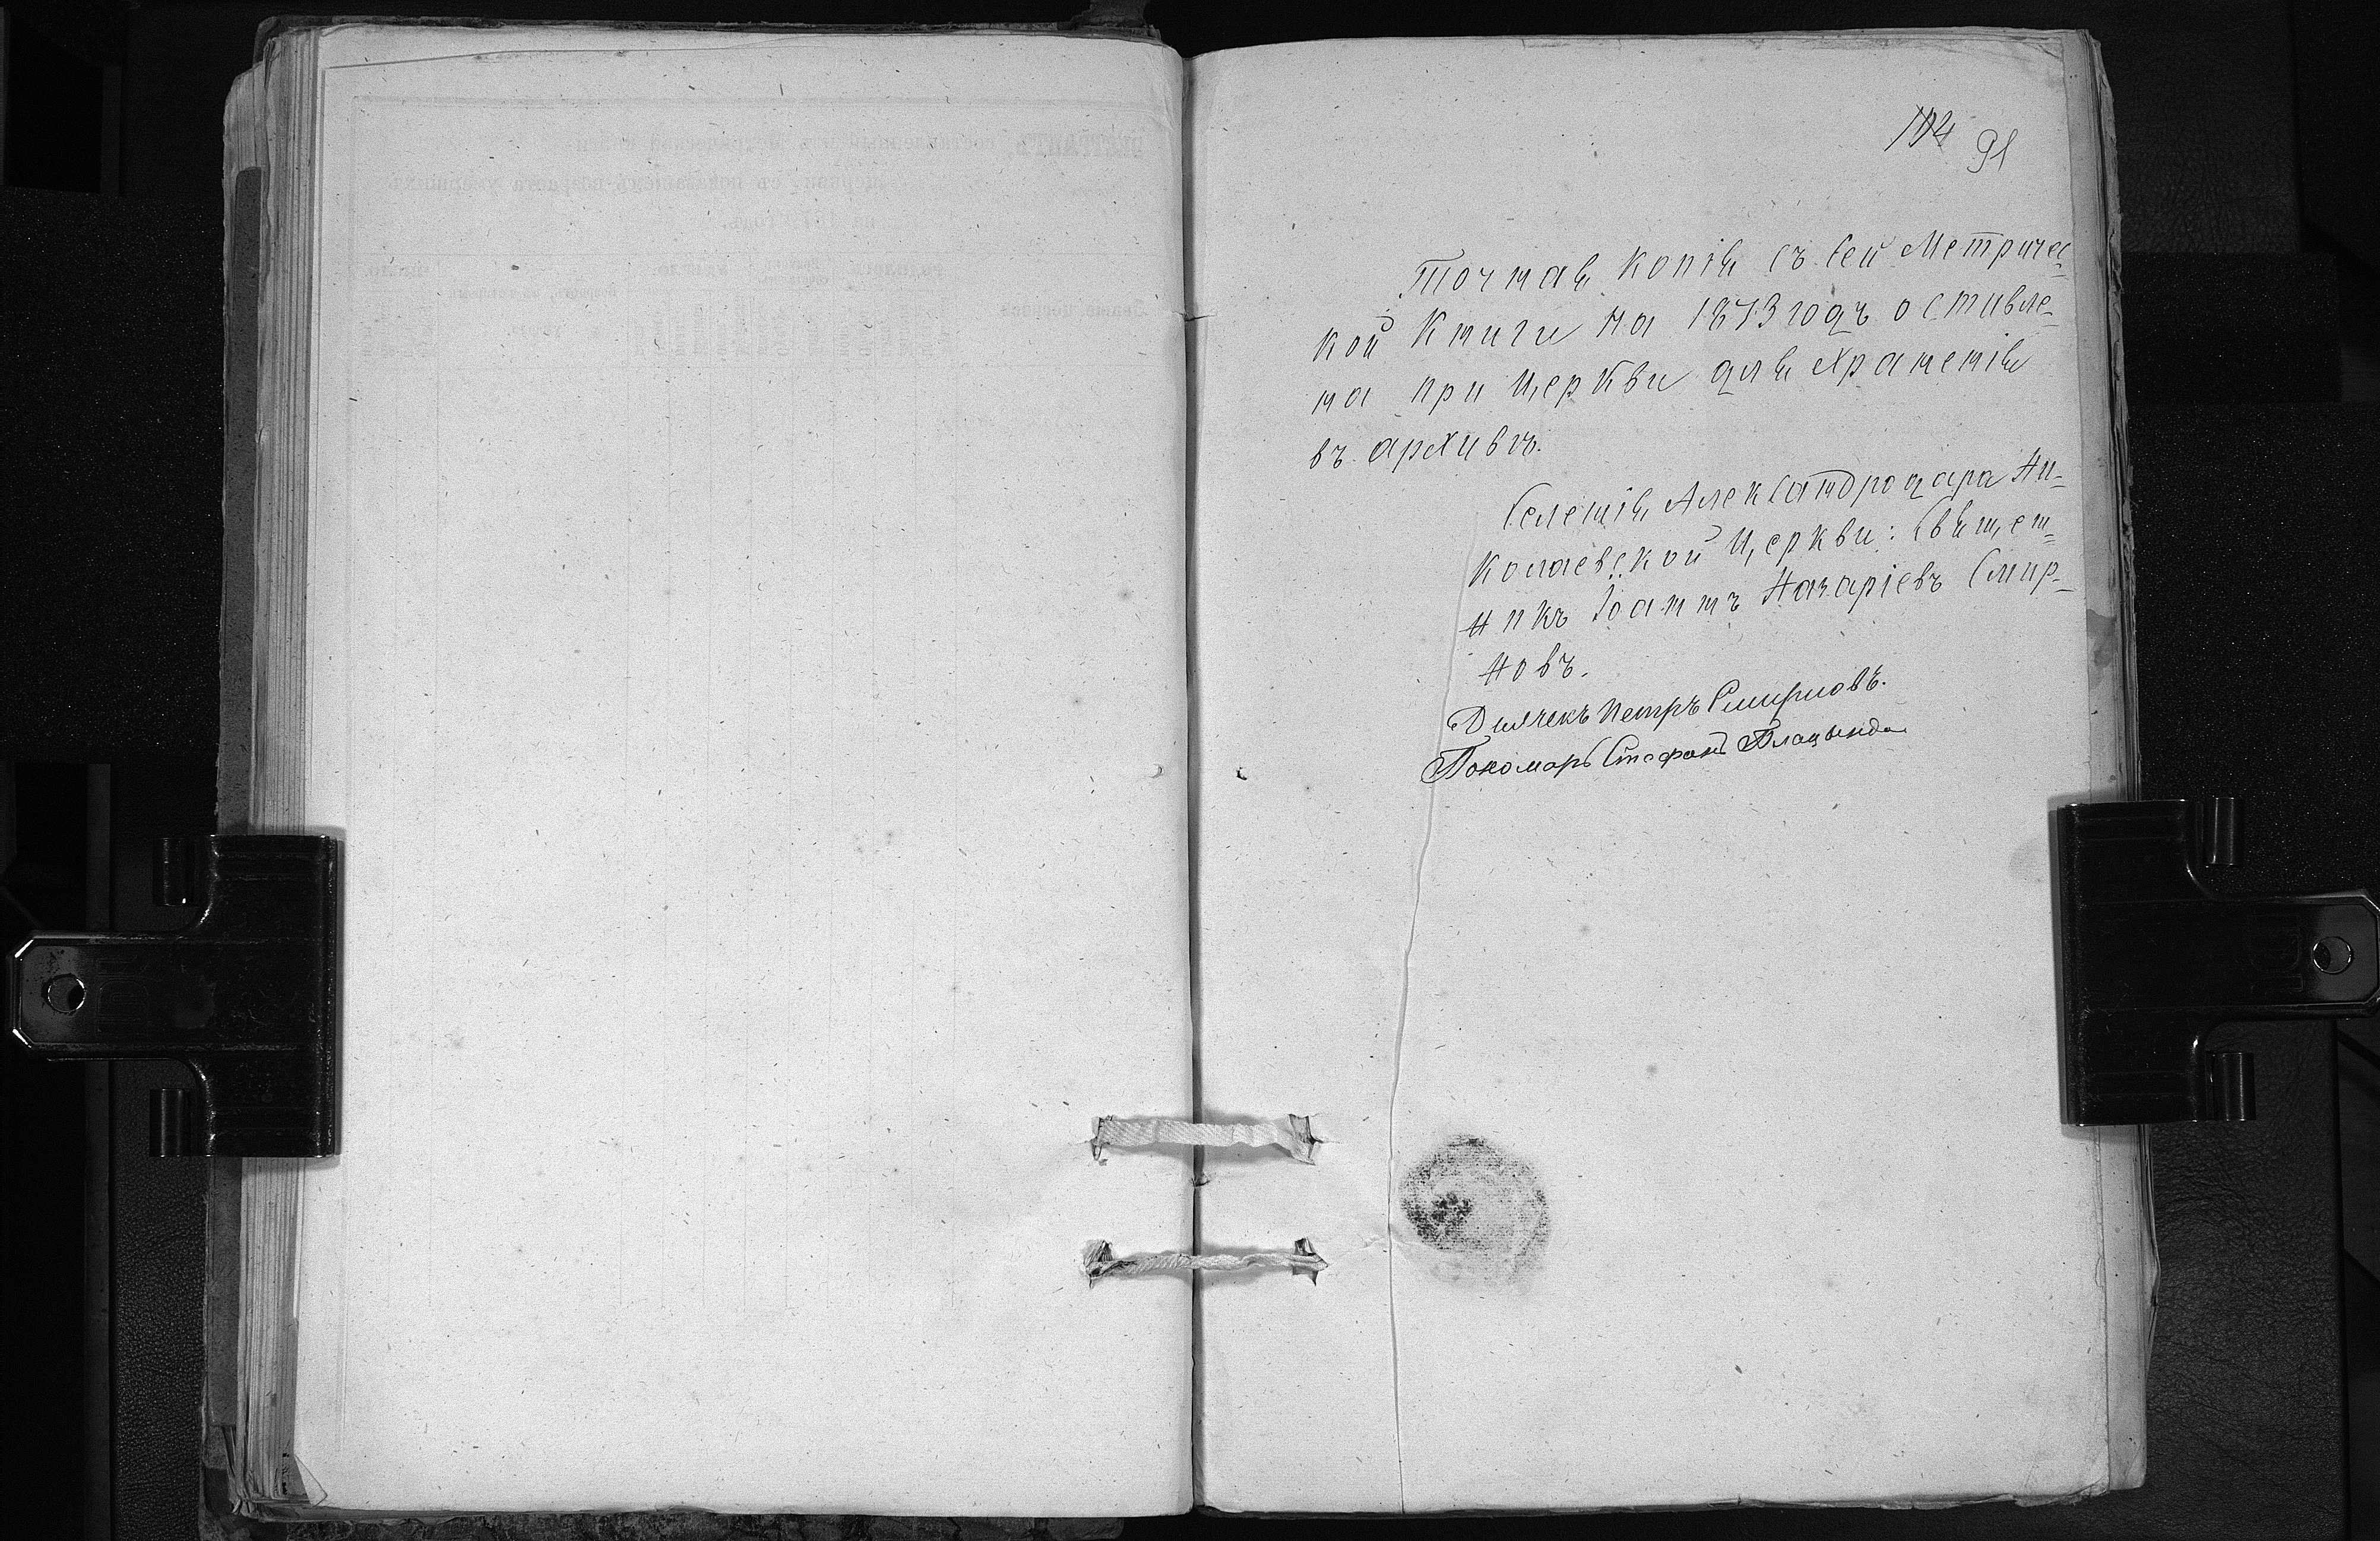 104 91
Точная копія съ сей Метричес-
кой Книги на 1873 годъ оставле-
на при Церкви для Храненія
въ архивѣ.
Селенія Александродара Ни-
колаевской Церкви: Священ-
никъ Іоаннъ Назаріевъ Смир-
новъ.
Дьячекъ Петръ Смирновъ.
Пономарь Стефанъ Плацында